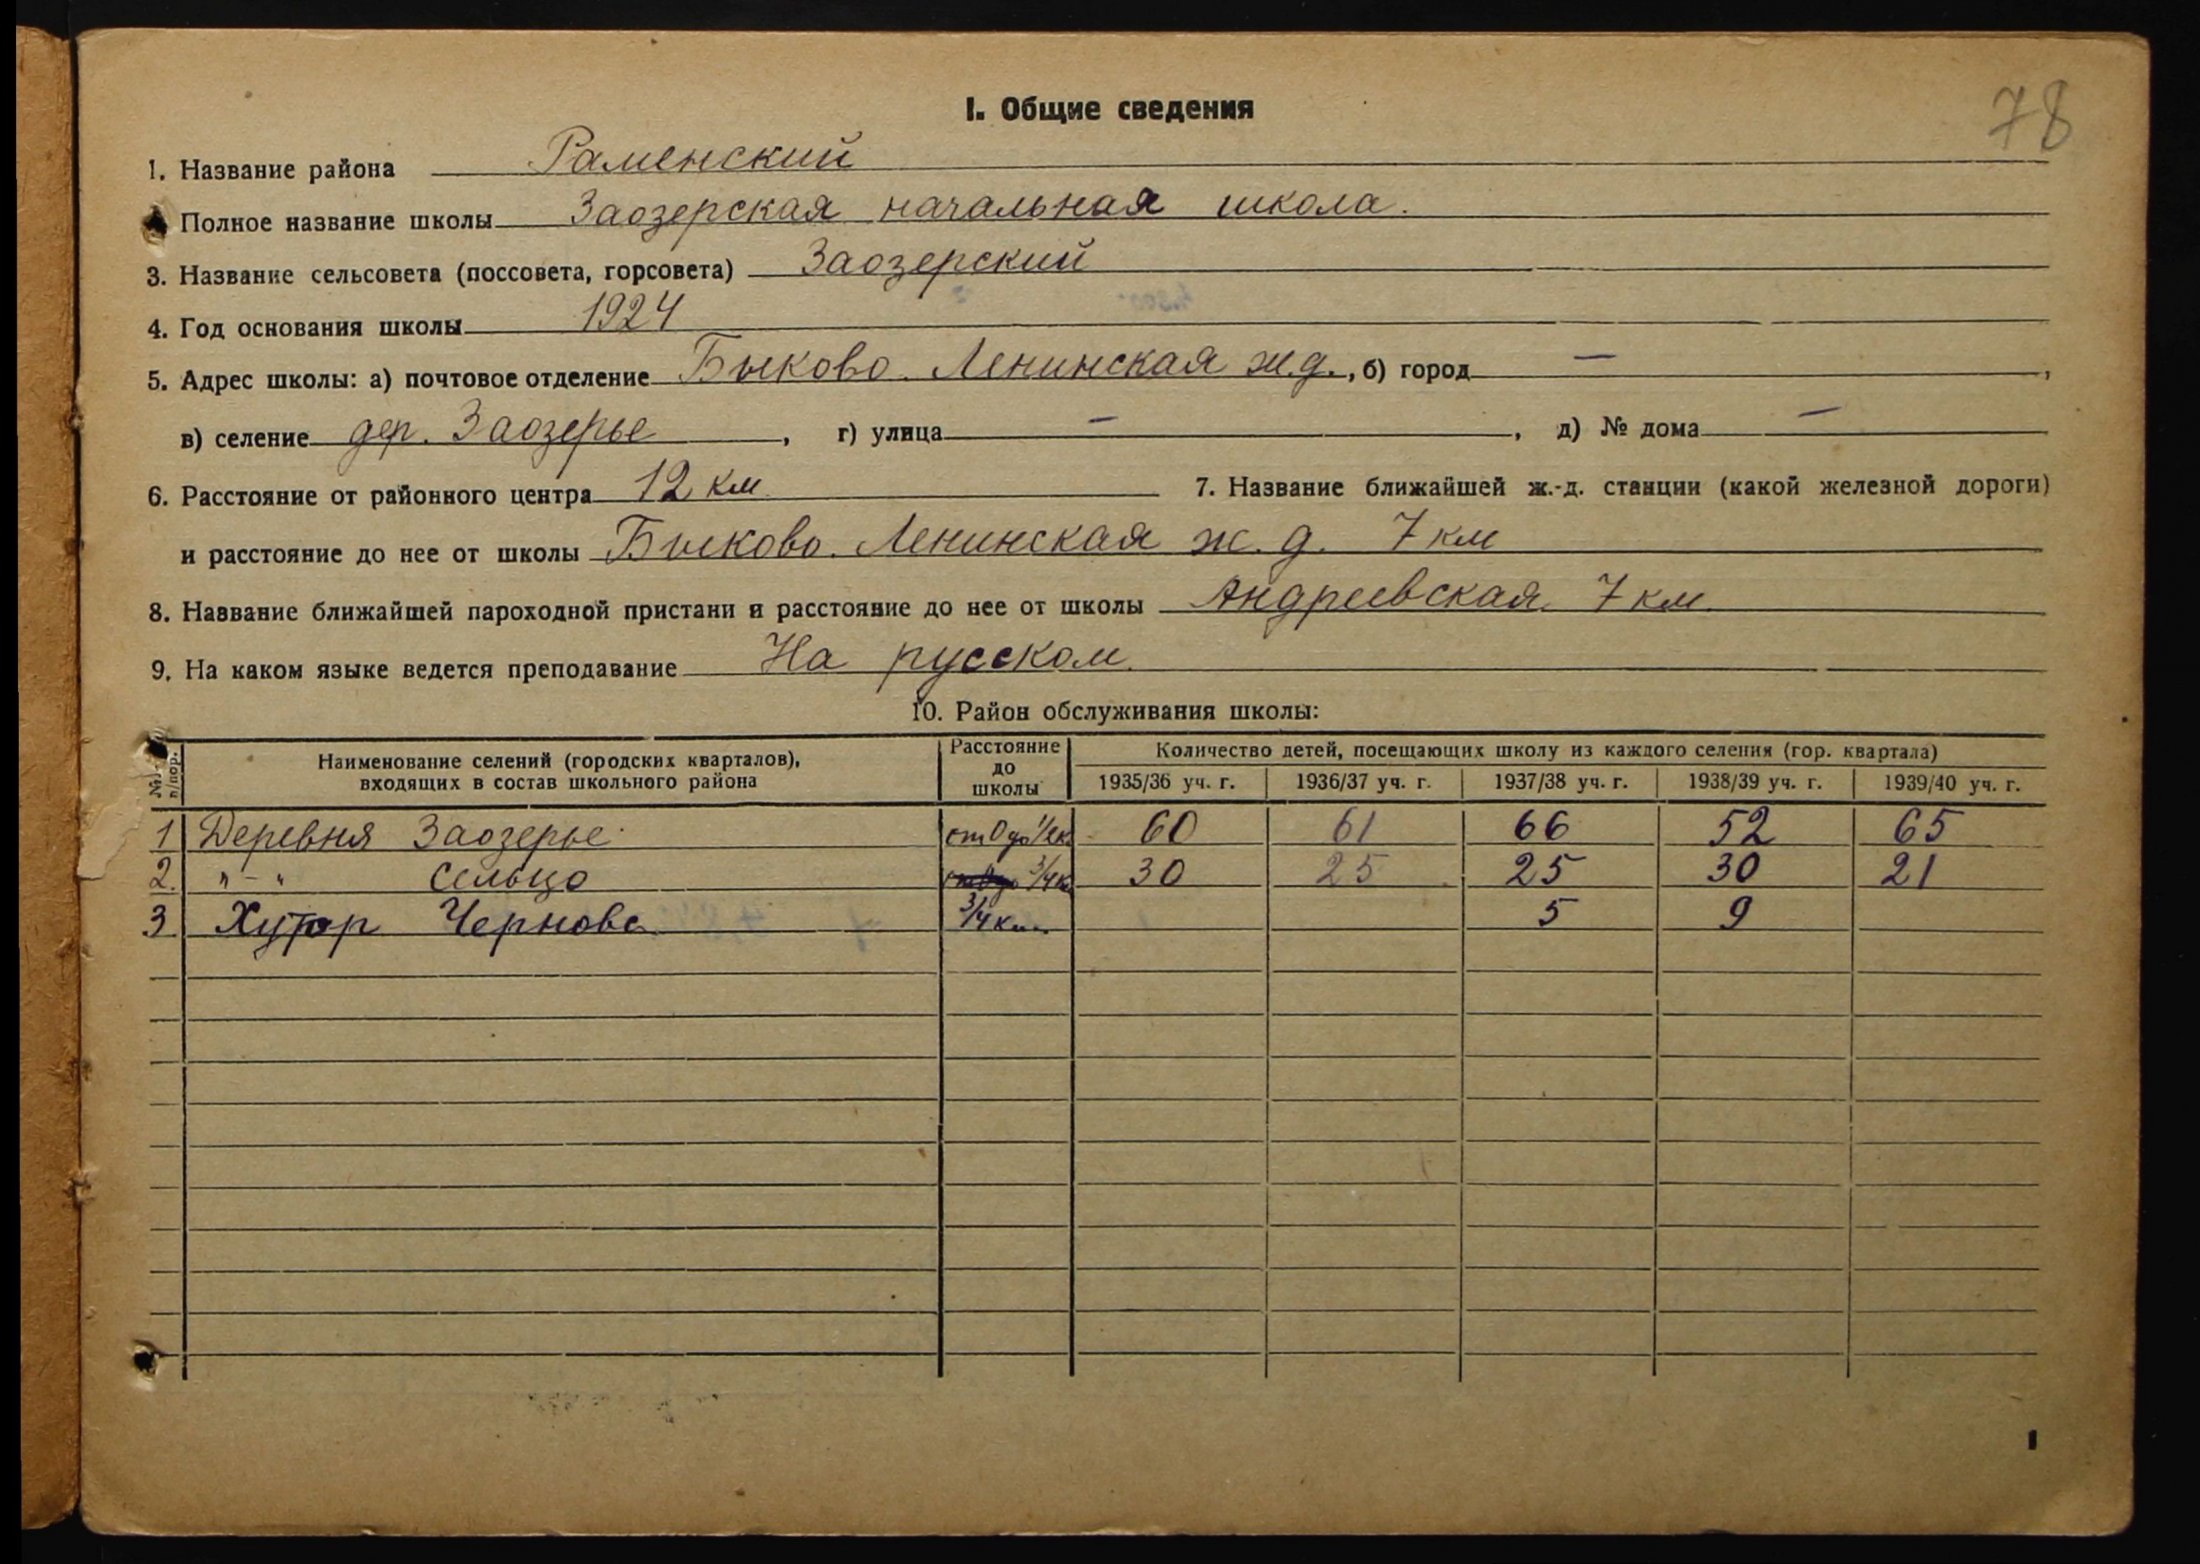 78
I. Общие сведения
1. Название района Раменский
Полное название школы Заозерская начальная школа.
3. Название сельсовета (поссовета, горсовета) Заозерский
4. Год основания школы 1924
5. Адрес школы: а) почтовое отделение Быково. Ленинская ж.д., б) город —,
в) селение дер. Заозерье, г) улица —, д) № дома —
6. Расстояние от районного центра 12 км. 7. Название ближайшей ж.-д. станции (какой железной дороги)
и расстояние до нее от школы Быково. Ленинская ж. д. 7 км
8. Название ближайшей пароходной пристани и расстояние до нее от школы Андреевская. 7 км.
9. На каком языке ведется преподавание На русском.
10. Район обслуживания школы:
№№ п/пор. Наименование селений (городских кварталов), входящих в состав школьного района Расстояние до школы Количество детей, посещающих школу из каждого селения (гор. квартала)
1935/36 уч. г. 1936/37 уч. г. 1937/38 уч. г. 1938/39 уч. г. 1939/40 уч. г.
1 Деревня Заозерье от 0 до 60 61 66 52 65
2. "-" Сельцо 3/4 к 30 25 25 30 21
3 Хутор Чернова 3/4 км. 5 9
1